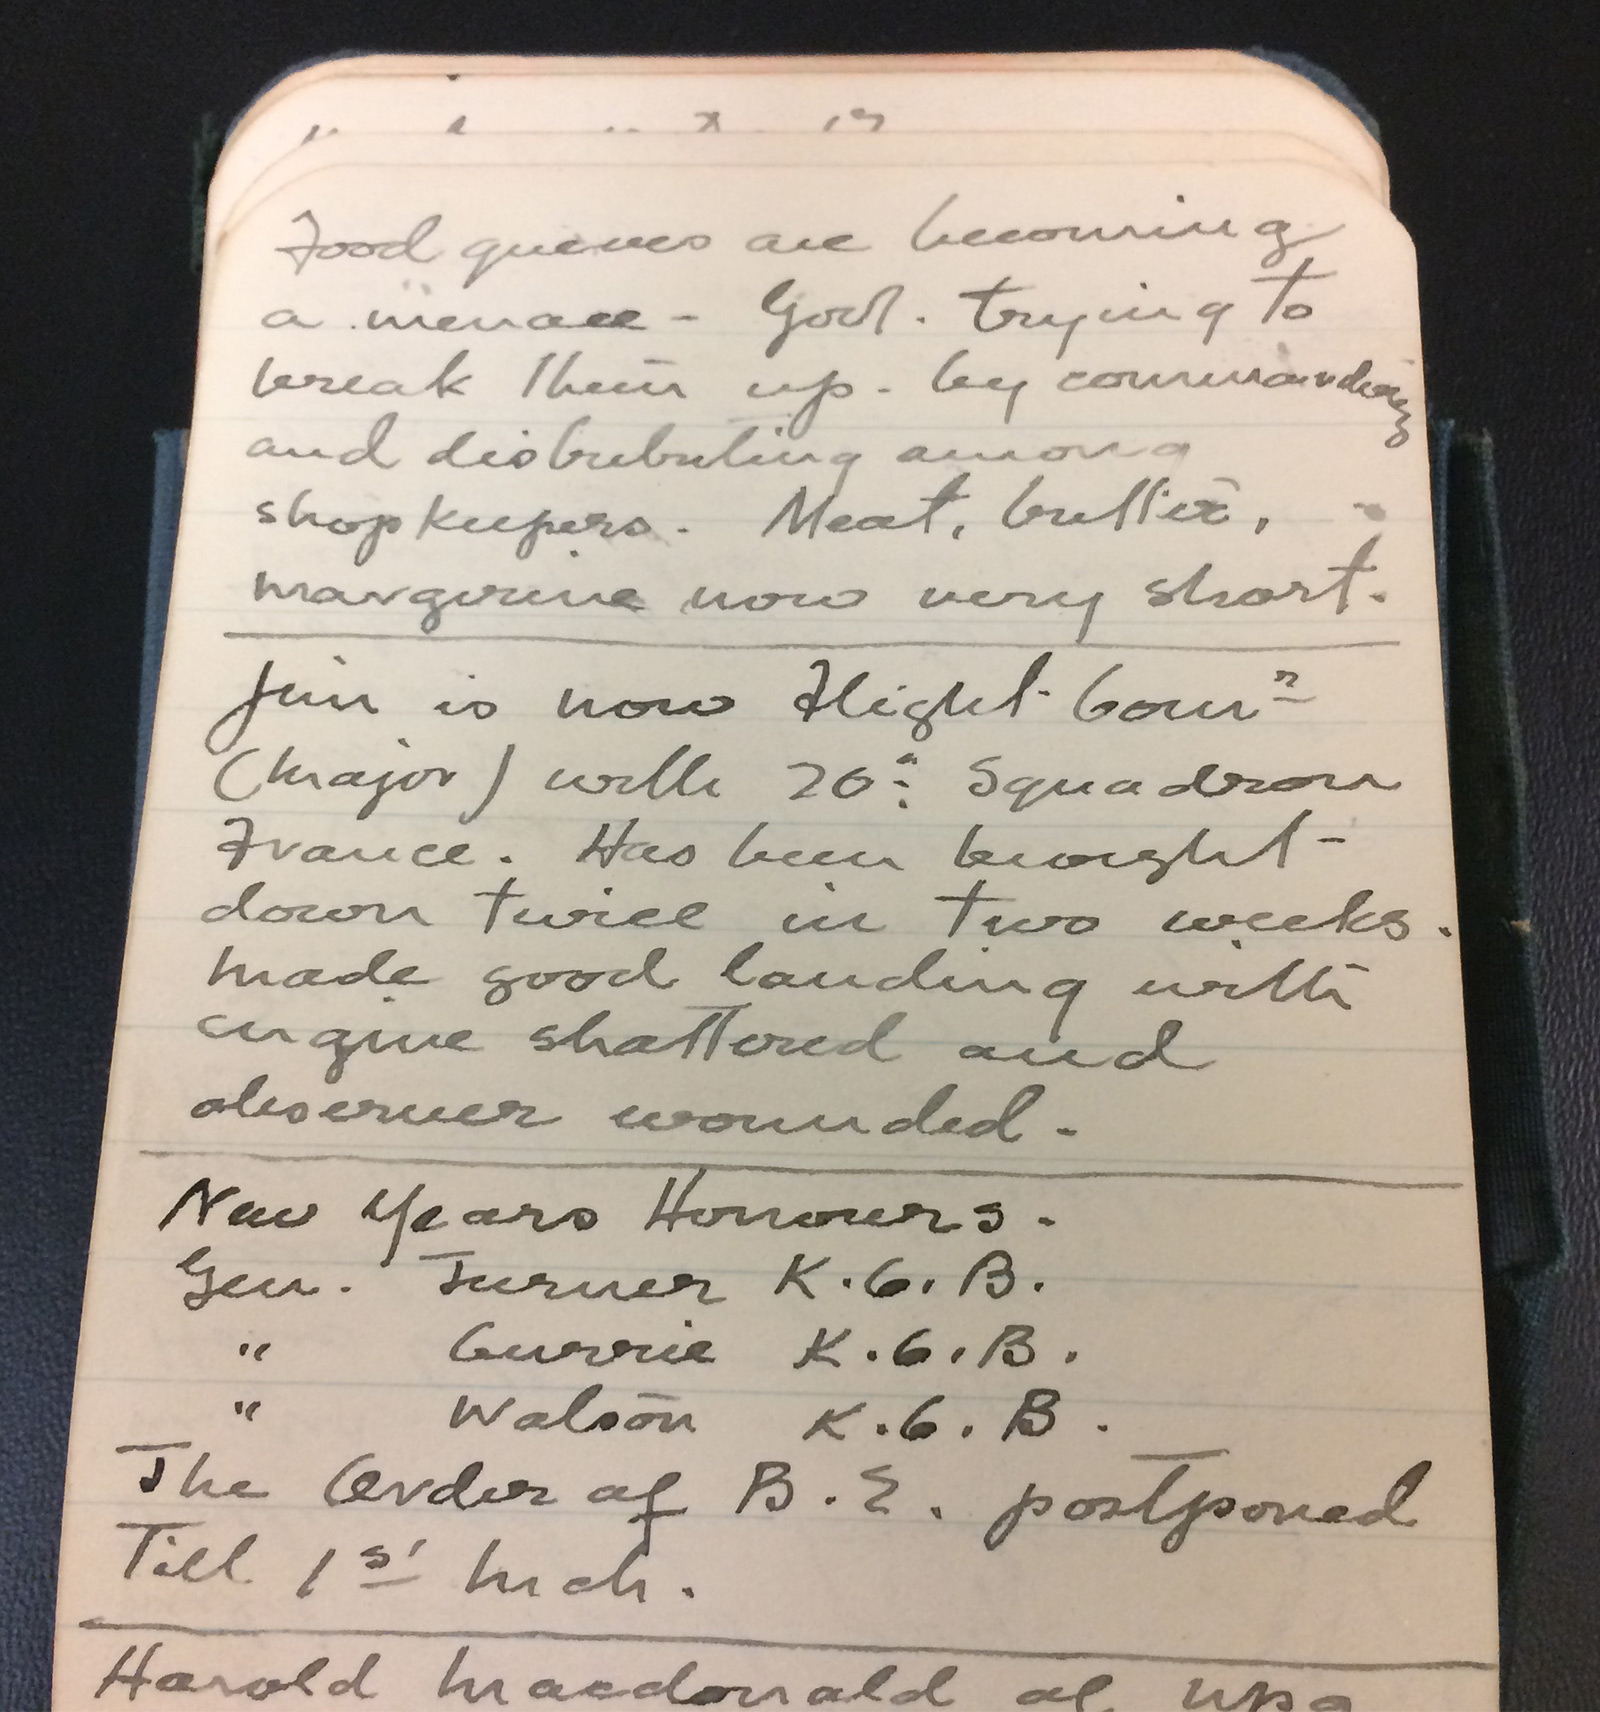 Food queues are becoming
a menace - Govt. trying to
break them up - by commanding
and distributing among
shopkeepers. Meat, butter,
margerine now very short.
Jim is now Flight Comⁿ
(Major) with 20" Squadron
France. Has been brought
down twice in two weeks.
Made good landing with
engine shattered and
observer wounded -
New Years Honours -
Gen. Turner K.C.B.
" Currie K.C.B.
" Watson K.C.B.
The Order of B.E. postponed
Till 1st Mch.
Harold Macdonald of Wpg